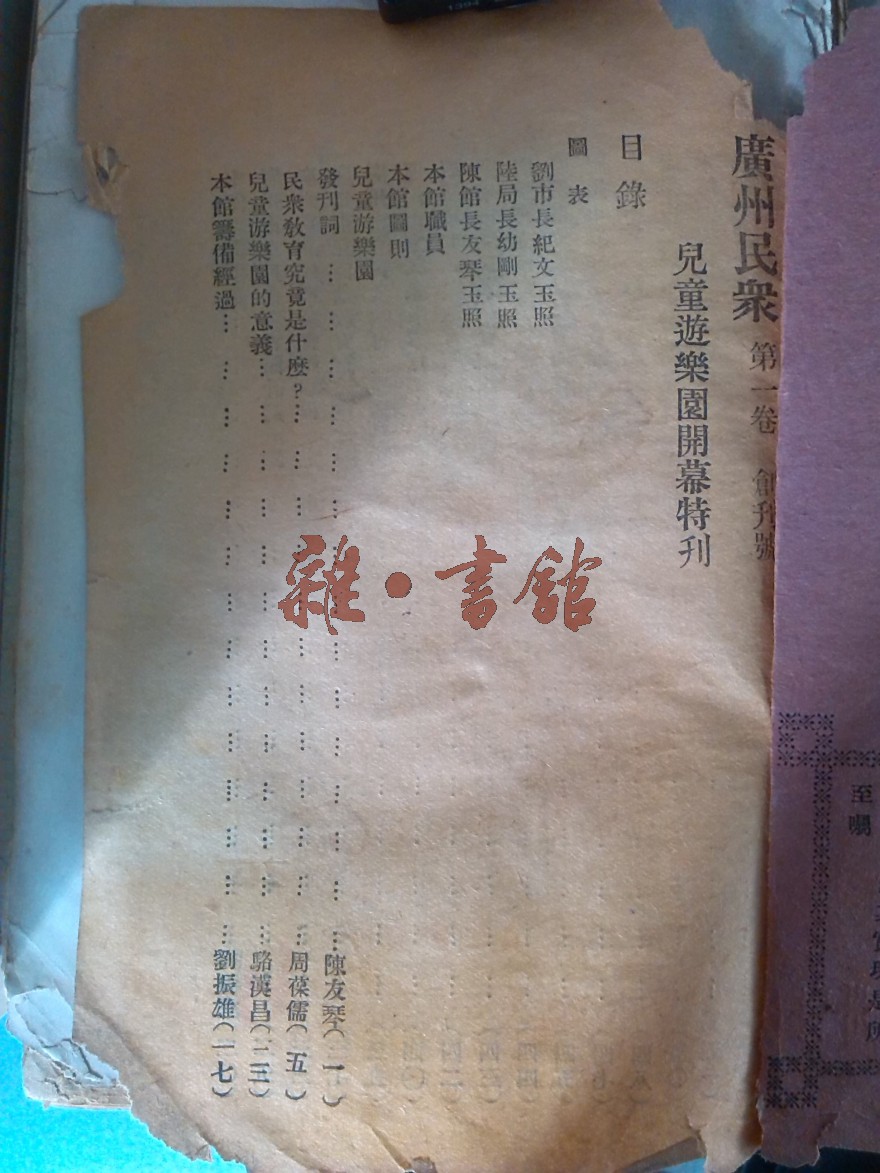 廣州民衆 第一卷 創刊號
兒童遊樂園開幕特刊
目錄
圖表
劉市長紀文玉照
陸局長幼剛玉照
陳館長友琴玉照
本館職員
本館圖則
兒童游樂園
發刊詞……………………………陳友琴(一)
民衆敎育究竟是什麼?……………………………周葆儒(五)
兒童游樂園的意義……………………………駱漢昌(一三)
本館籌備經過……………………………劉振雄(一七)
雜·書館
至囑